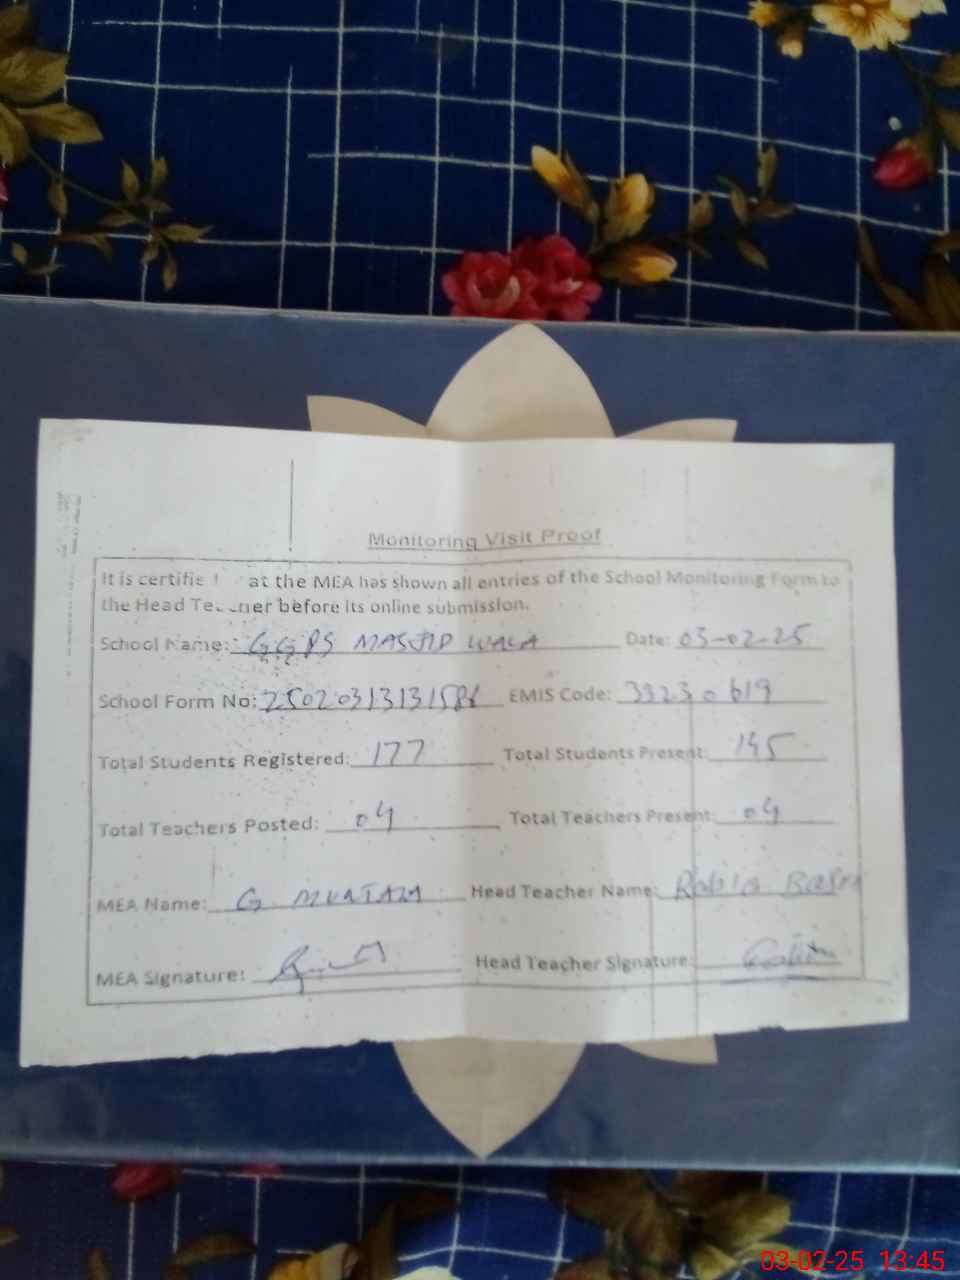 Monitoring Visit Proof
It is certifie at the MEA has shown all entries of the School Monitoring Form to
the Head Teacher before its online submission.
School Name: GGPS MASJID WALA Date: 03-02-25
School Form No: EMIS Code: 33230619
Total Students Registered: 177 Total Students Present: 145
Total Teachers Posted: 04 Total Teachers Present: 04
MEA Name: G Head Teacher Name: Rabia
MEA Signature: Head Teacher Signature:
03-02-25 13:45